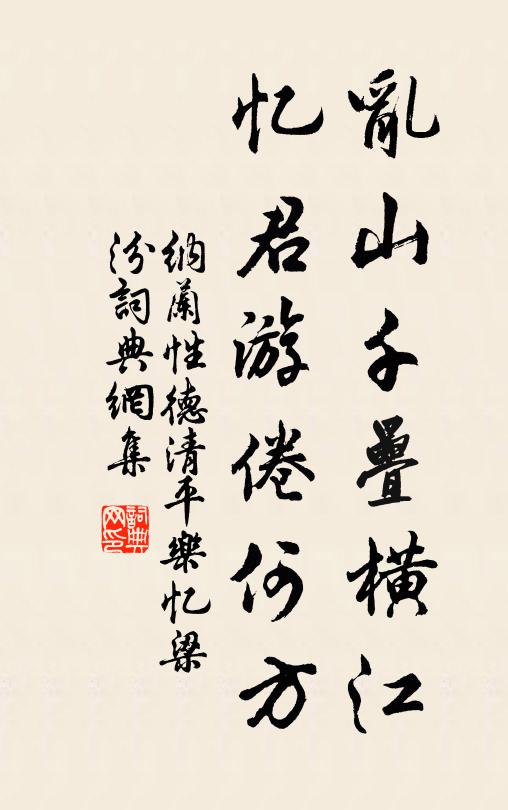 亂山千疊橫江
忆君游倦何方
纳蘭性德清平樂忆梁
汾詞典網集
詞典
网印